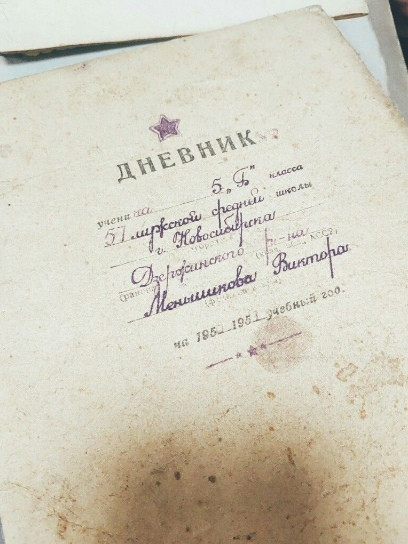 ДНЕВНИК
ученика 5 „Б" класса
57 мужской средней школы
г. Новосибирска
Дзержинского р-на
Меньшикова Виктора
на 1950-1951 учебный год.